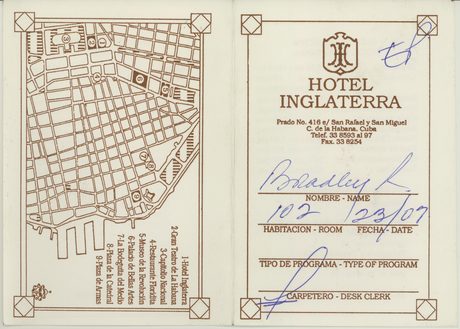 1-Hotel Inglaterra
2-Gran Teatro de La Habana
3-Capitolio Nacional
4-Restaurante Floridita
5-Museo de la Revolución
6-Palacio de Bellas Artes
7-La Bodeguita del Medio
8-Plaza de la Catedral
9-Plaza de Armas
HOTEL
INGLATERRA
Prado No. 416 e/ San Rafael y San Miguel
C. de la Habana, Cuba
Telef. 33 8593 al 97
Fax. 33 8254
Bradley R.
NOMBRE - NAME
102 23/07
HABITACION - ROOM FECHA - DATE
TIPO DE PROGRAMA - TYPE OF PROGRAM
CARPETERO - DESK CLERK